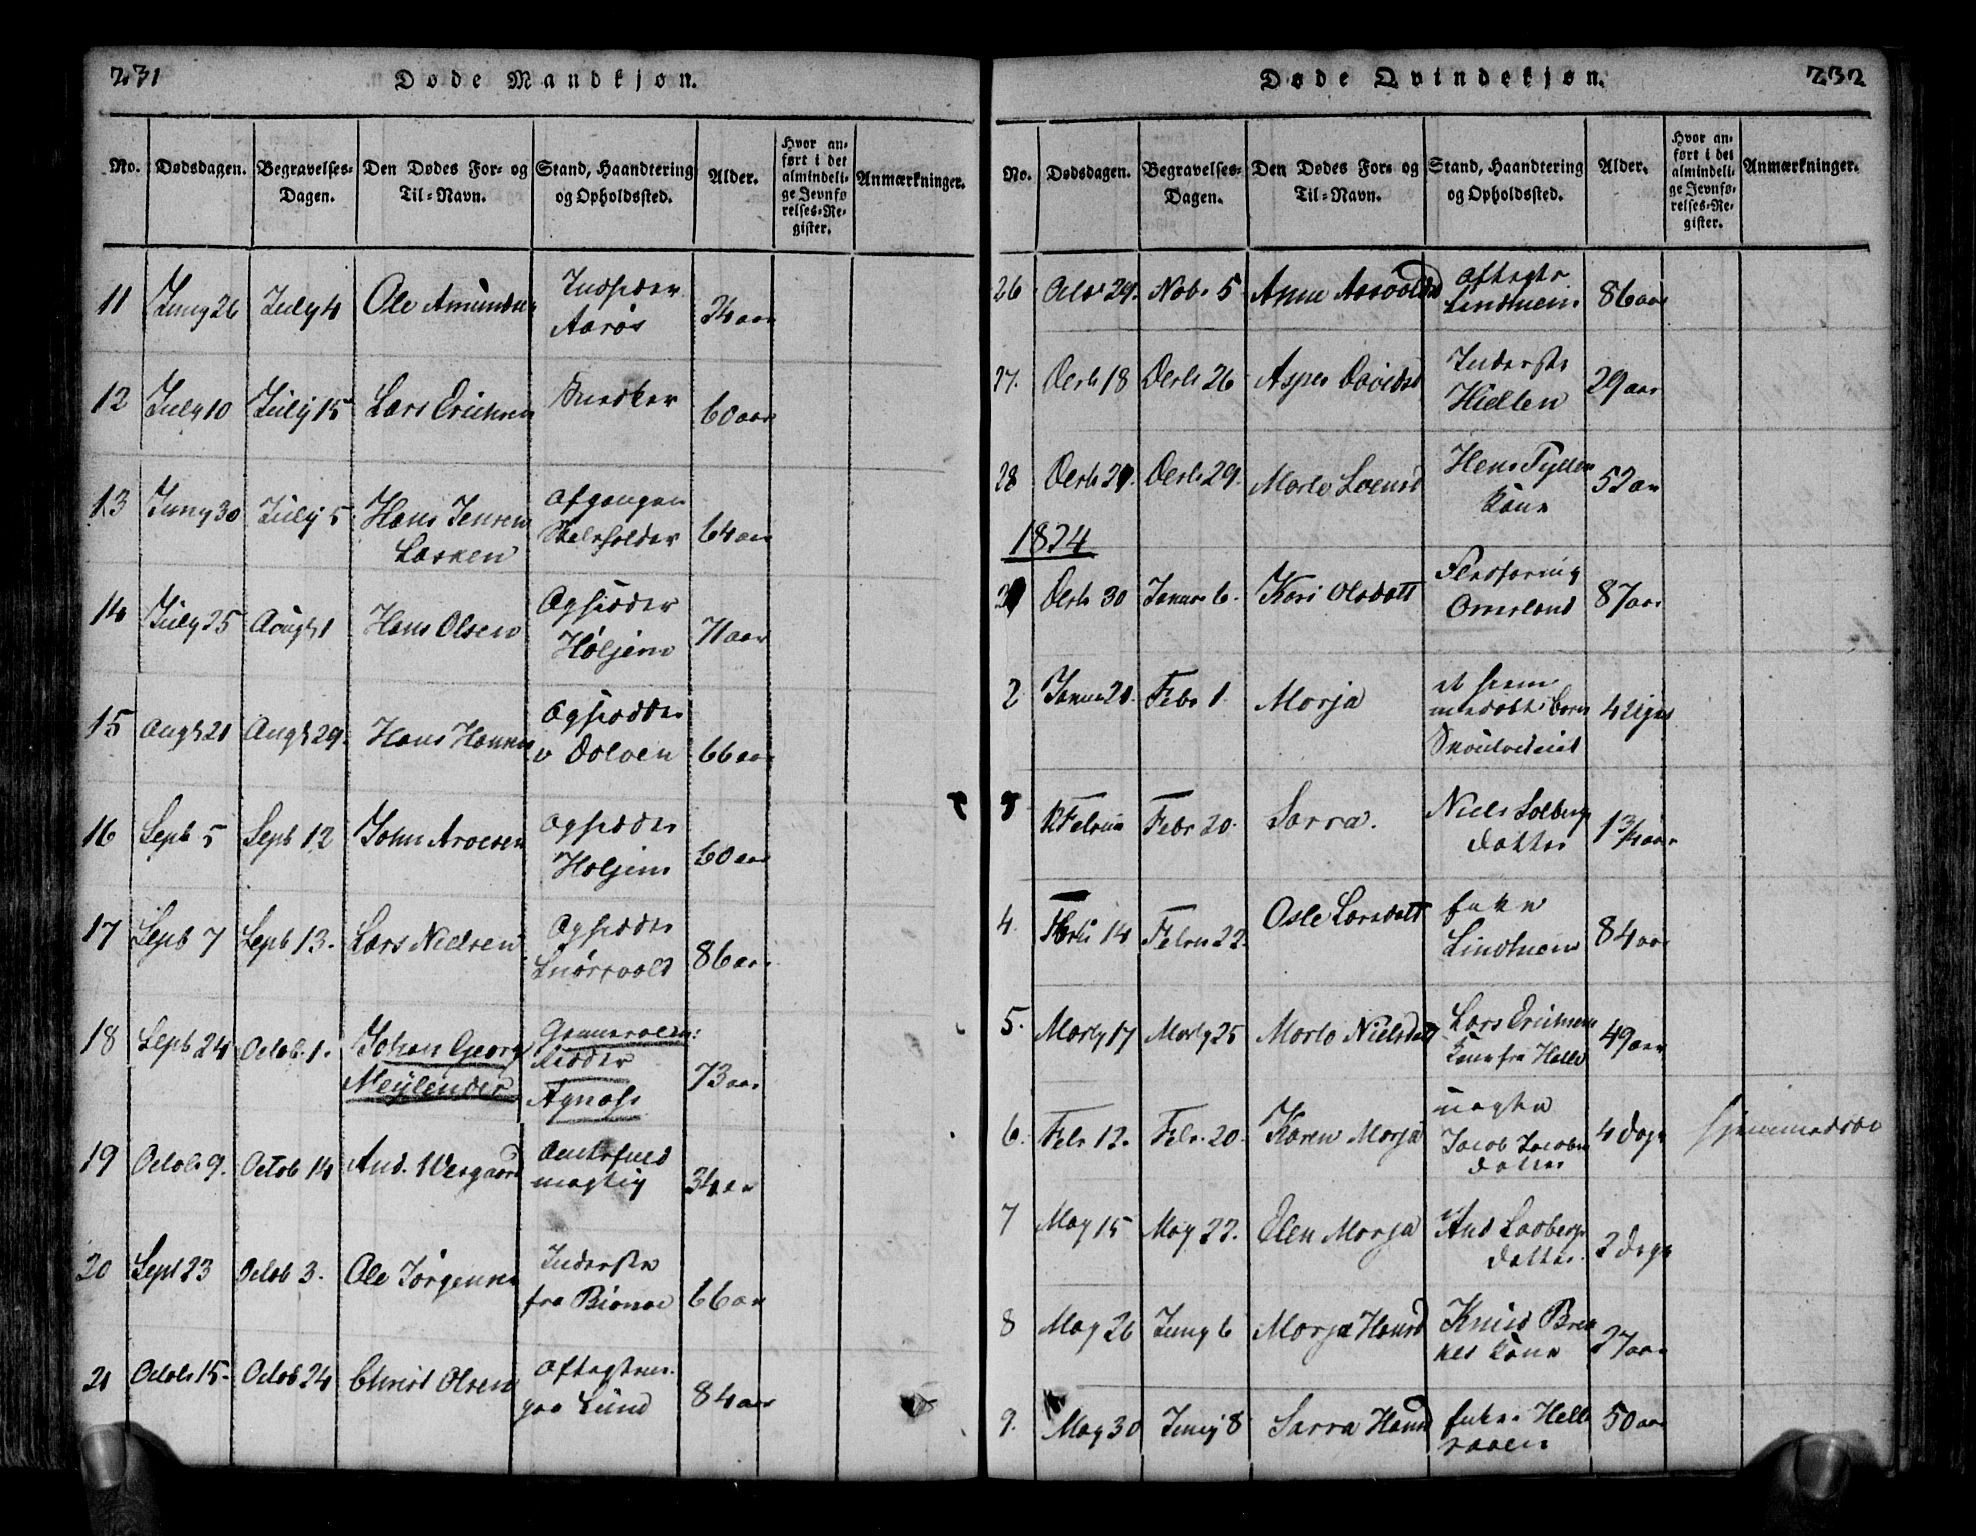 231
Døde Mandkjøn.
No. Dødsdagen. Begravelses-Dagen. Den Dødes For- og Til-Navn. Stand, Haandtering og Opholdssted. Alder. Hvor anført i det almindelige Jevnførelses-Register. Anmærkninger.
11 Juny 26 July 4 Ole Amundsen Indsidder
Aarøs 34 aar
12 July 10 July 15 Lars Erichsen Snedker 60 aar
13 Juny 30 July 5 Hans Jensen Afgangen
Lasken 64 aar
14 July 25 Augst 1 Hans Olsen Opsidder
Holjem 71 aar
15 Augst 21 Augst 29. Hans Hansen Opsidder
v Dolven 66 aar
16 Septb 5 Septb 12 John Arvesen Opsidder
Holjem 60 aar
17 Septb 7 Septb 13. Lars Nielsen Opsidder
86 aar
18 Septb 24 Octob. 1. Johan Georg
Meylender
Agnæs 73 aar
19 Octob 9. Octob 14 And. Wergaard
34 aar
20 Sept 23 Octob 3. Ole Jørgensen Inderste
fra Biønnæ 66 aar
21 Octob 15. Octob 24 Christ Olsen
paa Lund 84 aar
232
Døde Qvindekjøn.
No. Dødsdagen. Begravelses-Dagen. Den Dødes For- og Til-Navn. Stand, Haandtering og Opholdssted. Alder. Hvor anført i det almindelige Jevnførelses-Register. Anmærkninger.
26 Octbr 29. Nobr 5 Anne Aasoldsd
Lindhiem 86 aar
27. Decbr 18 Decbr 26 Asper Davidsd Inderste
Hielten 29 aar
28 Decbr Decbr 29. Marte Hans Tyllen
Kone 52 aar
1824
Decbr 30 Januar 6. Kari Olsdatt
Omsland 87 aar
2 Januar 21. Febr 1. Marja
4 Uger
Febr 20. Sarra. Niels Solberg
datter 1 3/4 aar
4. 14 Februar 22. Osle Larsdatt Enke
Lindhiem 84 aar
5. Marty 17 Marty 25 Marte Nielsdatt Lars Erichsen
Kone fra Helle 49 aar
6. Febr 12. Febr 20. Karen Marja uægte
Jacob Jacobs
datter 4 dage hjemmedøbt
7 May 15 May 22. Elen Marja And
datter. 2 dage
8 May 26 Juny 6 Marja Hansd Knud Bre
kes Kone 27 aar
9. May 30 Juny 8 Sarra Hansd Enke Helle
50 aar